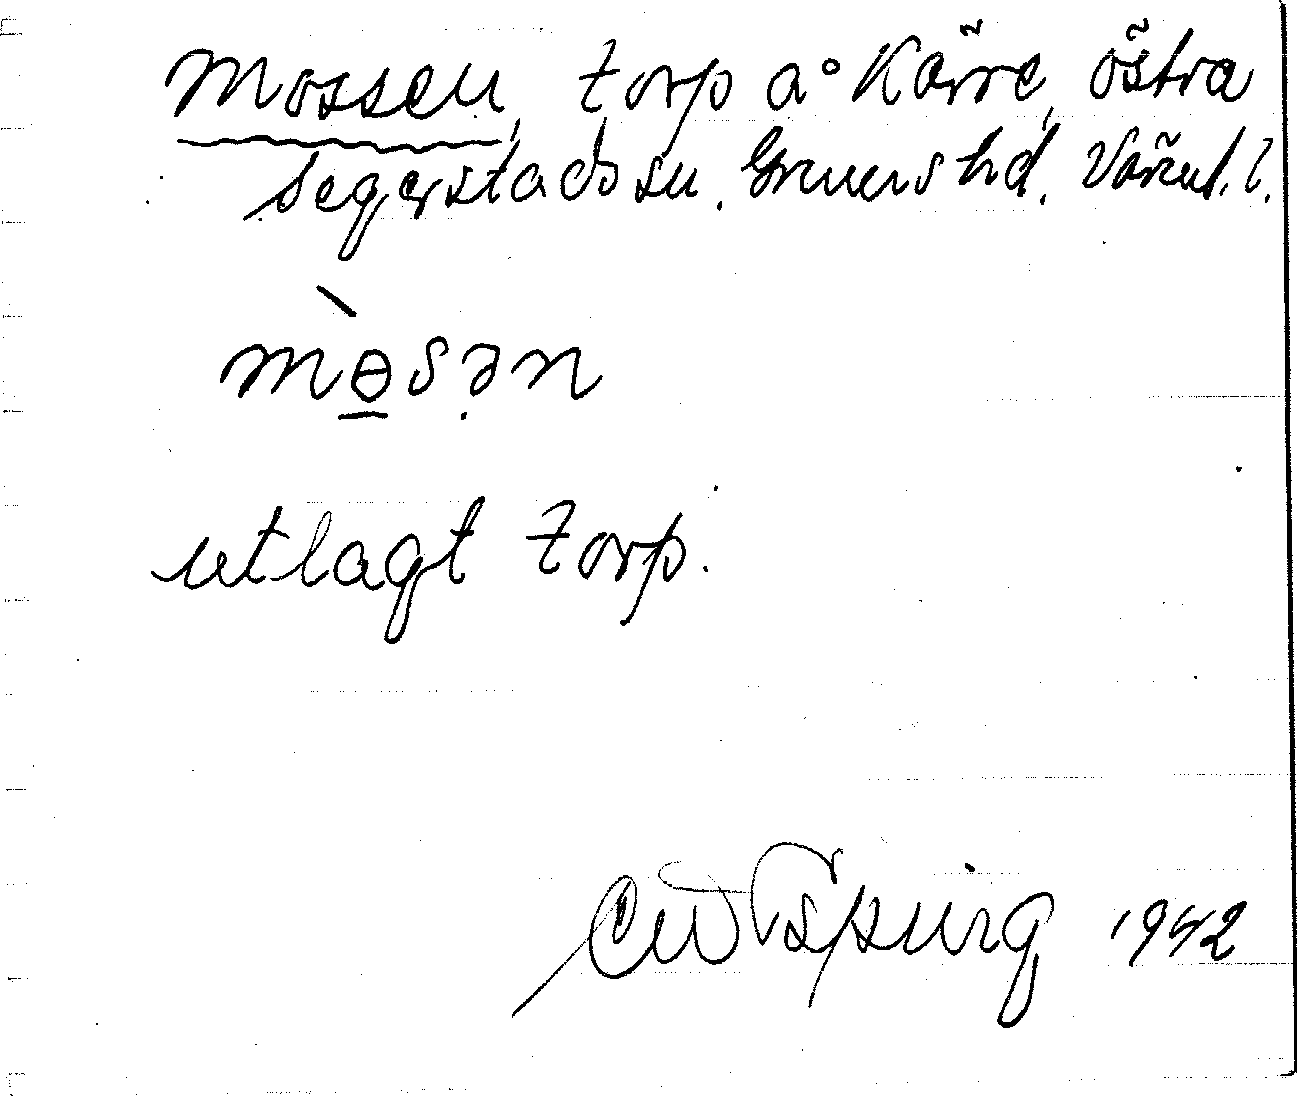 Mossen, torp å Kärre, östra
Segerstads sn. Grums hd. Värml. l.
mɵ̀sən
utlagt torp.
1942